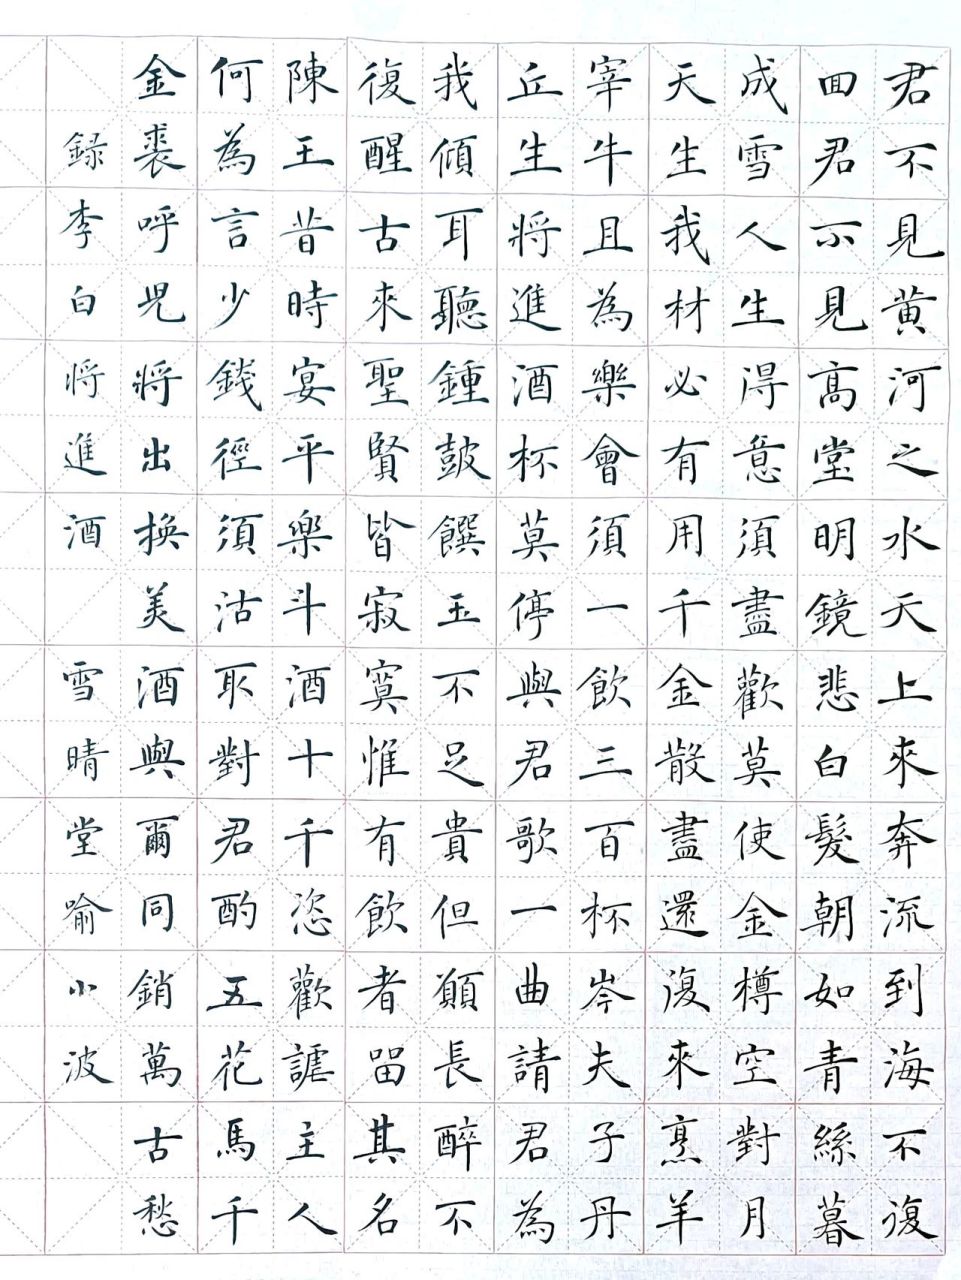 君不見黃河之水天上來奔流到海不復
回君不見高堂明鏡悲白髮朝如青絲暮
成雪人生得意須盡歡莫使金樽空對月
天生我材必有用千金散盡還復來烹羊
宰牛且為樂會須一飲三百杯岑夫子丹
丘生將進酒杯莫停與君歌一曲請君為
我傾耳聽鍾鼓饌玉不足貴但願長醉不
復醒古來聖賢皆寂寞惟有飲者留其名
陳王昔時宴平樂斗酒十千恣歡謔主人
何為言少錢徑須沽取對君酌五花馬千
金裘呼兒將出換美酒與爾同銷萬古愁
錄李白將進酒 雪晴堂喻小波